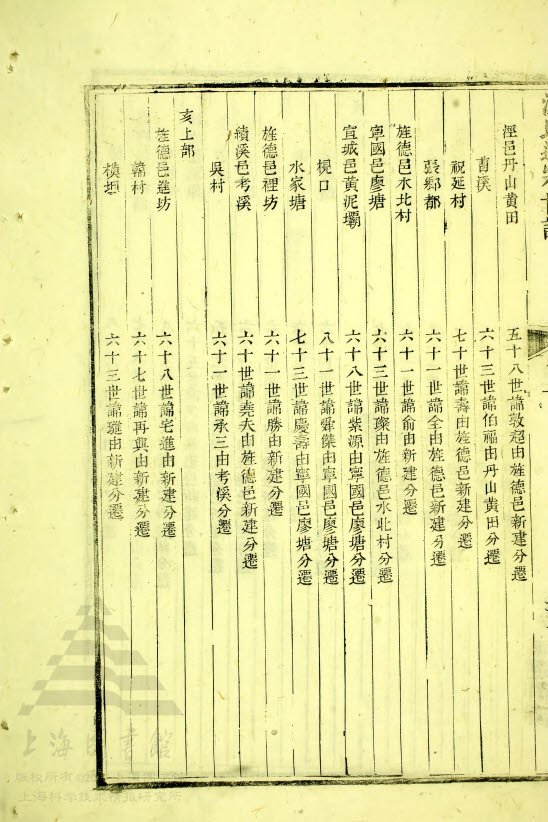 涇邑丹山黃田　五十八世諱敦超由旌德邑新建分遷
莒溪　六十三世諱伯福由丹山黃田分遷
祝延村　七十世諱壽由旌德邑新建分遷
張鄉都　六十一世諱全由旌德邑新建分遷
旌德邑水北村　六十一世諱俞由新建分遷
寧國邑廖塘　六十三世諱璨由旌德邑水北村分遷
宣城邑黃泥壩　六十八世諱紫源由寧國邑廖塘分遷
梘口　八十一世諱舜傑由寧國邑廖塘分遷
水家塘　七十三世諱慶壽由寧國邑廖塘分遷
旌德邑裡坊　六十一世諱勝由新建分遷
績溪邑考溪　六十世諱堯夫由旌德邑新建分遷
吳村　六十一世諱承三由考溪分遷
亥上部
旌德邑進坊　六十八世諱宅進由新建分遷
韓村　六十七世諱再興由新建分遷
橫坦　六十三世諱璡由新建分遷
上海图書館
版权所有
上海科学技术情报研究所